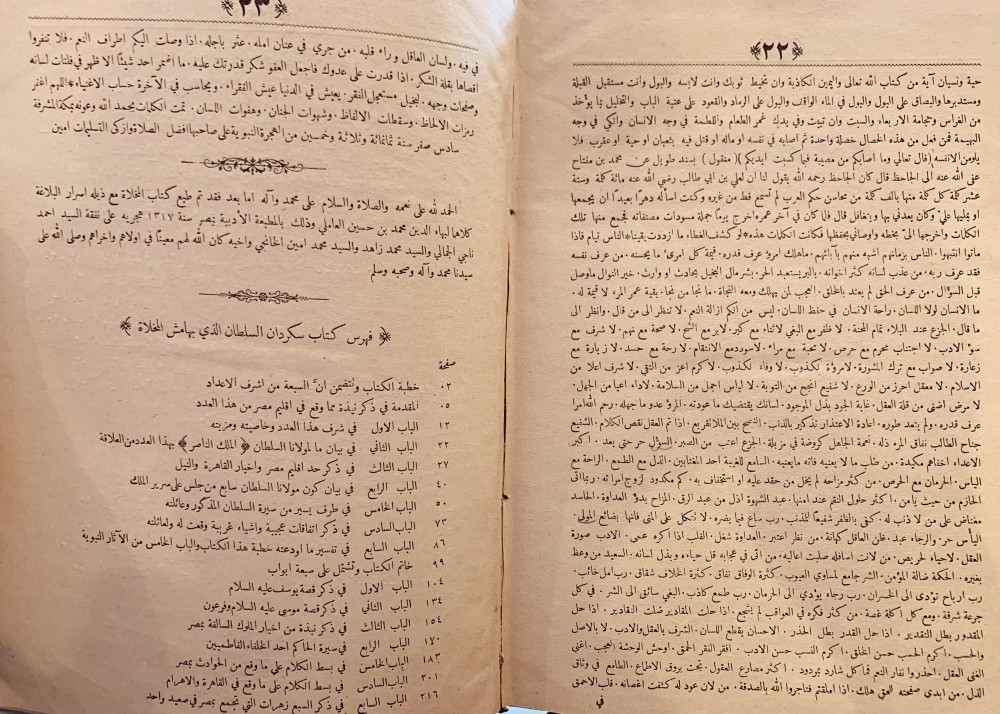 ﴿٢٢﴾
حية ونسيان آية من كتاب الله تعالى واليمين الكاذبة وان تخيط ثوبك وانت لابسه والبول وانت مستقبل القبلة
ومستدبرها والبصاق على البول والبول في الماء الواقف والبول على الرماد والقعود على عتبة الباب والتخليل بما يؤخذ
من الغراس وحجامة الاربعاء والسبت وان تبيت وفي يدك غمر الطعام واللطمة في وجه الانسان والكي في وجه
البهيمة فمن فعل من هذه الخصال خصلة واحدة ثم اصابه في نفسه او ماله او قتل فيه ثعبان او حية او عقرب فلا
يلومن الانفسه (قال تعالى وما اصابكم من مصيبة فبما كسبت ايديكم) (منقول) بسند طويل عن محمد بن مفتاح
عنى الله عنه الى الجاحظ قال كان الجاحظ رحمه الله يقول لنا ان لعلي بن ابي طالب رضي الله عنه مائة كلمة وستة
عشر كلمة كل كلمة منها بالف كلمة من محاسن حكم العرب لم تسمع قط من غيره وكنت اسأله دهرًا بعيدًا ان يجمعها
او يمليها علي وكان يعدني بها ويتغافل قال فلما كان في آخر عمره اخرج يومًا جملة مسودات مصنفاته فجمع منها تلك
الكلمات واخرجها الي بخطه واوصاني بحفظها فكانت الكلمات هذه * لو كشف الغطاء ما ازددت يقينا * الناس نيام فاذا
ماتوا انتبهوا . الناس بزمانهم اشبه منهم بآبائهم . ماهلك امرؤ عرف قدره . قيمة كل امرئ ما يحسنه . من عرف نفسه
فقد عرف ربه . من عذب لسانه كثر اخوانه . بالبر يستعبد الحر . بشر مال البخيل بحادث او وارث . خير النوال ماوصل
قبل السؤال . من عرف الحق لم يعتد بالخلق . العجب لمن يهلك ومعه النجاة . ما نجا من نجا . بقية عمر المرء لا قيمة له .
ما الانسان لولا اللسان . راحة الانسان في حفظ اللسان . ليس من انكم ازالة النعم . لا تنظر الى من قال . وانظر الى
ما قال . الجزع عند البلاء تمام المحنة . لا ظفر مع البغي لاثناء مع كبر . لابر مع الشح . لا صحة مع نهم . لا شرف مع
سوء الادب . لا اجتناب محرم مع حرص . لا محبة مع مراء . لاسودد مع الانتقام . لا رحة مع حسد . لا زيارة مع
زعارة . لا صواب مع ترك المشورة . لامروءة لكذوب . لا وفاء لكذوب . لا كرم اعز من التقى . لا شرف اعلا من
الاسلام . لا معقل احرز من الورع . لا شفيع انجح من التوبة . لا لباس اجمل من السلامة . لاداء اعيا من الجهل .
لا مرض اضنى من قلة العقل . غاية الجود بذل الموجود . لسانك يقتضيك ما عودته . المرؤ عدو ما جهله . رحم الله امرا
عرف قدره . ولم يتعد طوره . اعادة الاعتذار تذكير بالذنب . النصح بين الملا تقريع . اذا تم العقل نقص الكلام . الشفيع
جناح الطالب نفاق المرء ذله . نعمة الجاهل كروضة في مزبلة . الجزع اعتب من الصبر . السؤل حر حتى يعد . اكبر
الاعداء اخفاهم مكيدة . من طلب ما لا يعنيه فاته مايعنيه . السامع للغيبة احد المغتابين . الذل مع الطمع . الراحة مع
الياس . الحرمان مع الحرص . من كثر مزاحه لم يخل من حقد عليه او استخفاف به . ربما اتى
الحازم من حيث يامن . اكثر حلول النقم عند امنها . عبد الشهوة اذل من عبد الرق . المزاح بدؤ العداوة . الحاسد
مغتاض على من لا ذنب له . كفى بالظفر شفيعًا للمذنب . رب ساع فيما يضره . لا تتكل على المنى فانها بضائع المولى .
اليأس حر والرجاء عبد . ظن العاقل كهانة . من نظر اعتبر . العداوة شغل . القلب اذا اكره عمى . الادب صورة
العقل . لاحياء لحريص . من لانت اسافله صلبت اعاليه . من اتى في عجانه قل حياءه وبذل لسانه . السعيد من وعظ
بغيره . الحكمة ضالة المؤمن . الشر جامع لمساوي العيوب . كثرة الوفاق نفاق . كثرة الخلاف شقاق . رب امل خائب .
رب ارباح تؤدى الى الخسران . رب رجاء يؤدي الى الحرمان . رب طمع كاذب . البغي سائق الى الشر . في كل
جرعة شرقة . ومع كل اكلة غصة . من كثر فكره في العواقب لم يشجع . اذا حلت المقادير ضلت التقادير . اذا حل
المقدور بطل التقدير . اذا حل القدر بطل الحذر . الاحسان يقطع اللسان . الشرف بالعقل والادب . لا بالاصل
والحسب . اكرم الحسب حسن الخلق . اكرم النسب حسن الادب . افقر الفقر الحمق . اوحش الوحشة العجب . اغنى
الغنى العقل . احذروا نفار النعم فما كل شارد بمردود . اكثر مصارع العقول . تحت بروق الاطماع . الطامع في وثاق
الذل . من ابدى صفحته للحق هلك . اذا املقتم فتاجروا الله بالصدقة . من لان عود له كثفت اغصانه . قلب الاحمق
في
﴿٢٣﴾
في فيه . ولسان العاقل وراء قلبه . من جري في عنان امله . عثر باجله . اذا وصلت اليكم اطراف النعم . فلا تنفروا
اقصاها بقلة الشكر . اذا قدرت على عدوك فاجعل العفو شكر قدرتك عليه . ما اضمر احد شيئًا الا ظهر في فلتات لسانه
وصفحات وجهه . البخيل مستعجل الفقر . يعيش في الدنيا عيش الفقراء . ويحاسب في الآخرة حساب الاغنياء * اللهم اغفر
رمزات الالحاظ . وسقطات الالفاظ . وشهوات الجنان . وهفوات اللسان . تمت الكلمات بحمد الله وعونه بمكة المشرفة
سادس صفر سنة ثمانمائة وثلاثة وخمسين من الهجرة النبوية على صاحبها افضل الصلاة وازكى التسليمات امين
الحمد لله على نعمه والصلاة والسلام على محمد وآله اما بعد فقد تم طبع كتاب المخلاة مع ذيله اسرار البلاغة
كلاها لبهاء الدين محمد بن حسين العاملي وذلك بالمطبعة الأدبية بمصر سنة ١٣١٧ هجريه على نفقة السيد احمد
ناجي الجمالي والسيد محمد زاهد والسيد محمد امين الخانجي واخيه كان الله لهم معينًا في اولاهم واخراهم وصلى الله على
سيدنا محمد وآله وصحبه وسلم
﴿ فهرس كتاب سكردان السلطان الذي بهامش المخلاة ﴾
صفحة
٠٢ خطبة الكتاب وتتضمن انّ السبعة من اشرف الاعداد
٠٥ المقدمة في ذكر نبذة مما وقع في اقليم مصر من هذا العدد
١٣ الباب الاول في شرف هذا العدد وخاصيته ومزيته
٢٢ الباب الثاني في بيان ما لمولانا السلطان ﴿ الملك الناصر ﴾ بهذا العدد من العلاقة
٢٧ الباب الثالث في ذكر حد اقليم مصر واخبار القاهرة والنيل
٤٠ الباب الرابع في بيان كون مولانا السلطان سابع من جلس على سرير الملك
٥٠ الباب الخامس في طرف يسير من سيرة السلطان المذكور وعائلته
٧٣ الباب السادس في ذكر اتفاقات عجيبة واشياء غريبة وقعت له ولعائلته
٨٦ الباب السابع في تفسير ما اودعته خطبة هذا الكتاب والباب الخامس من الآثار النبوية
٩٩ خاتم الكتاب وتشتمل على سبعة ابواب
١٠٤ الباب الاول في ذكر قصة يوسف عليه السلام
١٣٤ الباب الثاني في ذكر قصة موسى عليه السلام وفرعون
١٥٤ الباب الثالث في ذكر نبذة من اخبار الملوك السالفة بمصر
١٧٠ الباب الرابع في سيرة الحاكم احد الخلفاء الفاطميين
١٨٣ الباب الخامس في بسط الكلام على ما وقع من الحوادث بمصر
٢٠١ الباب السادس في بسط الكلام على ما وقع في القاهرة والاهرام
٢١٦ الباب السابع في ذكر السبع زهرات التي تجتمع بمصر في صعيد واحد